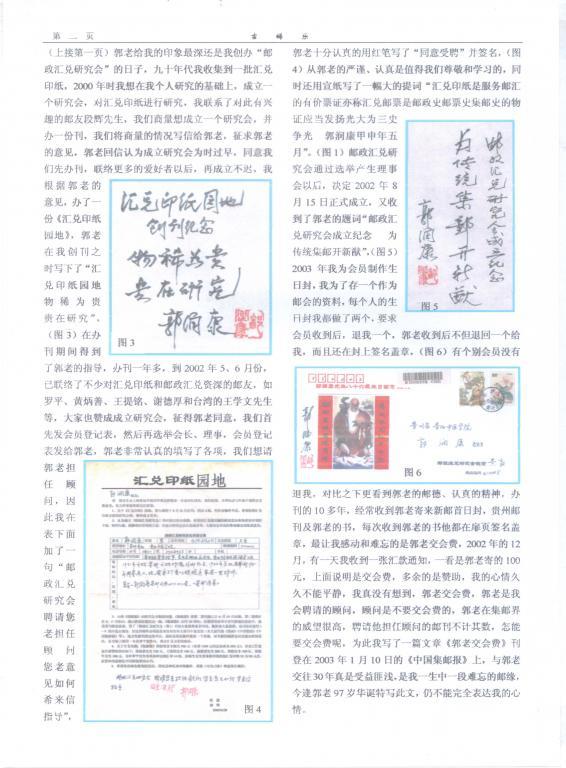 第 二 页
（上接第一页）郭老给我的印象最深还是我创办“邮
政汇兑研究会”的日子，九十年代我收集到一批汇兑
印纸，2000年时我想在我个人研究的基础上，成立一
个研究会，对汇兑印纸进行研究，我联系了对此有兴
趣的邮友段辉先生，我们商量想成立一个研究会，并
办一份刊，我们将商量的情况写信给郭老，征求郭老
的意见，郭老回信认为成立研究会为时过早，同意我
们先办刊，联络更多的爱好者以后，再成立不迟，我
根据郭老的
意见，办了一
份《汇兑印纸
园地》，郭老
在我创刊之
时写下了“汇
兑印纸园地
物稀为贵
贵在研究”。
（图3）在办
刊期间得到
汇兑印纸园地
创刊纪念
物稀为贵
贵在研究
郭润康
图3
了郭老的指导，办刊一年多，到2002年5、6月份，
已联络了不少对汇兑印纸和邮政汇兑资深的邮友，如
罗平、黄炳善、王提铭、谢德厚和台湾的王学文先生
等，大家也赞成成立研究会，征得郭老同意，我们首
先发会员登记表，然后再选举会长、理事，会员登记
表发给郭老，郭老非常认真的填写了各项，我们想请
郭老担
任顾
问，因
此我在
表下面
加了一
句“邮
政汇兑
研究会
聘请您
老担任
顾问
您老意
见如何
希来信
指导”，
汇兑印纸园地
图4
郭老十分认真的用红笔写了“同意受聘”并签名，（图
4）从郭老的严谨、认真是值得我们尊敬和学习的，同
时还用宣纸写了一幅大的提词“汇兑印纸是服务邮汇
的有价票证亦称汇兑邮票是邮政史邮票史集邮史的物
证应当发扬光大为三史
争光 郭润康甲申年五
月”。（图1）邮政汇兑研
究会通过选举产生理事
会以后，决定2002年8
月15日正式成立，又收
到了郭老的题词“邮政汇
兑研究会成立纪念 为
传统集邮开新猷”，（图5）
2003年我为会员制作生
日封，我为了存一个作为
邮会的资料，每个人的生
日封我都做了两个，要求
邮政汇兑研究会成立纪念
为传统集邮开新猷
郭润康
图5
会员收到后，退我一个，郭老收到后不但退回一个给
我，而且还在封上签名盖章，（图6）有个别会员没有
图6
退我，对比之下更看到郭老的邮德、认真的精神，办
刊的10多年，经常收到郭老寄来新邮首日封，贵州邮
刊及郭老的书，每次收到郭老的书他都在扉页签名盖
章，最让我感动和难忘的是郭老交会费，2002年的12
月，有一天我收到一张汇款通知，一看是郭老寄的100
元，上面说明是交会费，多余的是赞助，我的心情久
久不能平静，我真没有想到，郭老交会费，郭老是我
会聘请的顾问，顾问是不要交会费的，郭老在集邮界
的威望很高，聘请他担任顾问的邮刊不计其数，怎能
要交会费呢，为此我写了一篇文章《郭老交会费》刊
登在2003年1月10日的《中国集邮报》上，与郭老
交往30年真是受益匪浅，是我一生中一段难忘的邮缘，
今逢郭老97岁华诞特写此文，仍不能完全表达我的心
情。